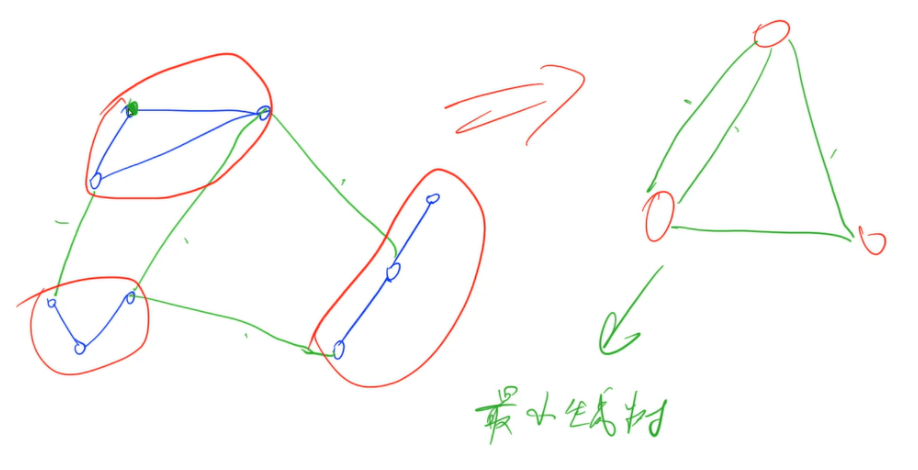 最小生成树